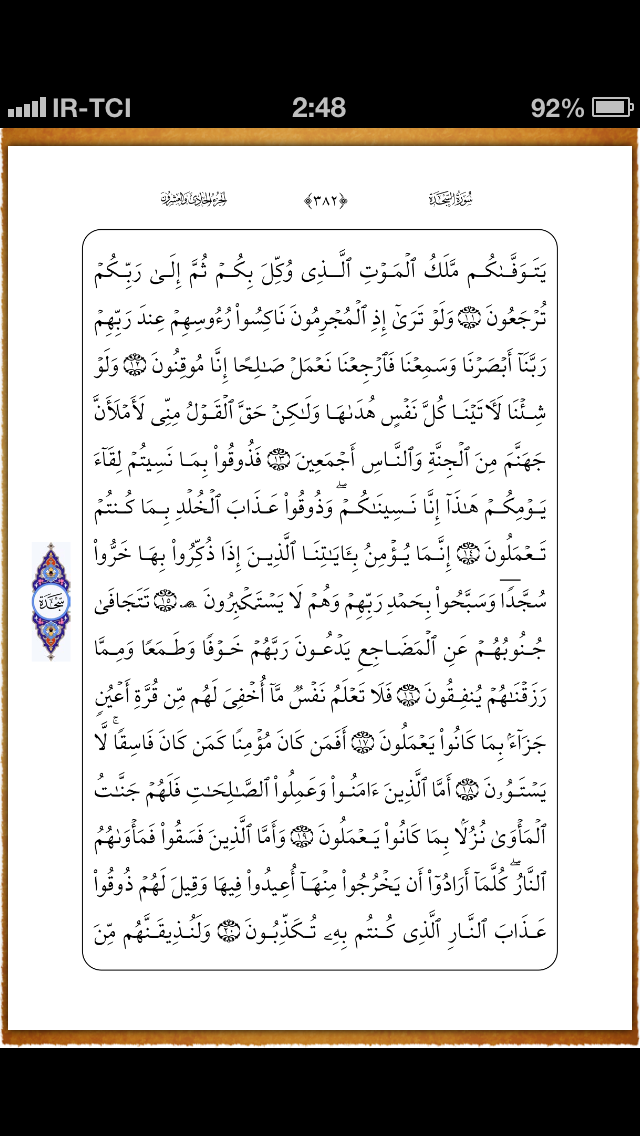 IR-TCI 2:48 92%
سُورَةُ السَّجْدَةِ ﴿٣٨٢﴾ الجزء الحادي والعشرون
يَتَوَفَّىٰكُم مَّلَكُ ٱلۡمَوۡتِ ٱلَّذِى وُكِّلَ بِكُمۡ ثُمَّ إِلَىٰ رَبِّكُمۡ
تُرۡجَعُونَ ١١ وَلَوۡ تَرَىٰٓ إِذِ ٱلۡمُجۡرِمُونَ نَاكِسُواْ رُءُوسِهِمۡ عِندَ رَبِّهِمۡ
رَبَّنَآ أَبۡصَرۡنَا وَسَمِعۡنَا فَٱرۡجِعۡنَا نَعۡمَلۡ صَٰلِحًا إِنَّا مُوقِنُونَ ١٢ وَلَوۡ
شِئۡنَا لَأٓتَيۡنَا كُلَّ نَفۡسٍ هُدَىٰهَا وَلَٰكِنۡ حَقَّ ٱلۡقَوۡلُ مِنِّى لَأَمۡلَأَنَّ
جَهَنَّمَ مِنَ ٱلۡجِنَّةِ وَٱلنَّاسِ أَجۡمَعِينَ ١٣ فَذُوقُواْ بِمَا نَسِيتُمۡ لِقَآءَ
يَوۡمِكُمۡ هَٰذَآ إِنَّا نَسِينَٰكُمۡۖ وَذُوقُواْ عَذَابَ ٱلۡخُلۡدِ بِمَا كُنتُمۡ
تَعۡمَلُونَ ١٤ إِنَّمَا يُؤۡمِنُ بِـَٔايَٰتِنَا ٱلَّذِينَ إِذَا ذُكِّرُواْ بِهَا خَرُّواْ
سُجَّدًا وَسَبَّحُواْ بِحَمۡدِ رَبِّهِمۡ وَهُمۡ لَا يَسۡتَكۡبِرُونَ ۩ ١٥ تَتَجَافَىٰ
سجدة
جُنُوبُهُمۡ عَنِ ٱلۡمَضَاجِعِ يَدۡعُونَ رَبَّهُمۡ خَوۡفًا وَطَمَعًا وَمِمَّا
رَزَقۡنَٰهُمۡ يُنفِقُونَ ١٦ فَلَا تَعۡلَمُ نَفۡسٌ مَّآ أُخۡفِىَ لَهُم مِّن قُرَّةِ أَعۡيُنٍ
جَزَآءَۢ بِمَا كَانُواْ يَعۡمَلُونَ ١٧ أَفَمَن كَانَ مُؤۡمِنًا كَمَن كَانَ فَاسِقًاۚ لَّا
يَسۡتَوُۥنَ ١٨ أَمَّا ٱلَّذِينَ ءَامَنُواْ وَعَمِلُواْ ٱلصَّٰلِحَٰتِ فَلَهُمۡ جَنَّٰتُ
ٱلۡمَأۡوَىٰ نُزُلَۢا بِمَا كَانُواْ يَعۡمَلُونَ ١٩ وَأَمَّا ٱلَّذِينَ فَسَقُواْ فَمَأۡوَىٰهُمُ
ٱلنَّارُۖ كُلَّمَآ أَرَادُوٓاْ أَن يَخۡرُجُواْ مِنۡهَآ أُعِيدُواْ فِيهَا وَقِيلَ لَهُمۡ ذُوقُواْ
عَذَابَ ٱلنَّارِ ٱلَّذِى كُنتُم بِهِۦ تُكَذِّبُونَ ٢٠ وَلَنُذِيقَنَّهُم مِّنَ